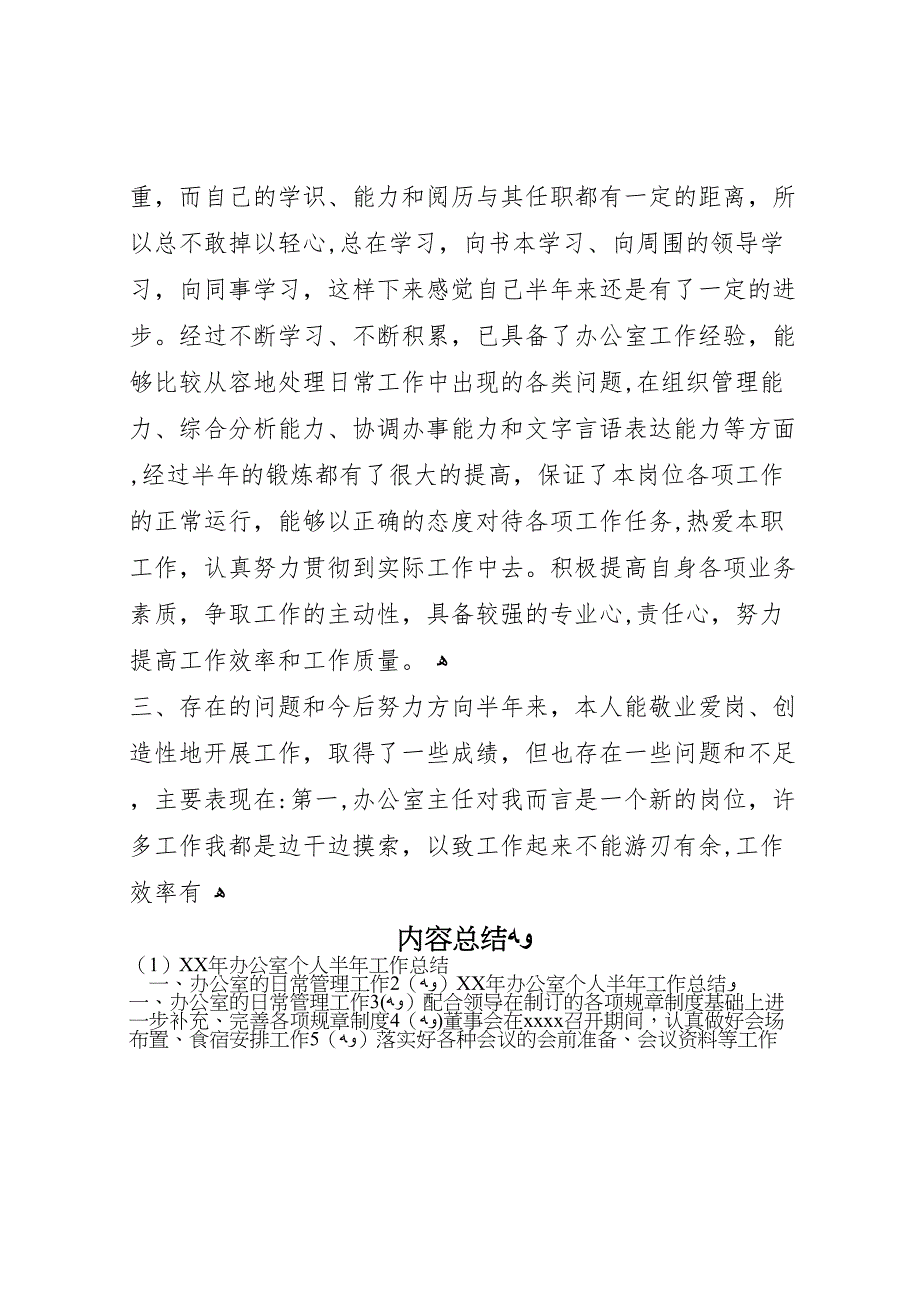 重，而自己的学识、能力和阅历与其任职都有一定的距离，所
以总不敢掉以轻心,总在学习，向书本学习、向周围的领导学
习，向同事学习，这样下来感觉自己半年来还是有了一定的进
步。经过不断学习、不断积累，已具备了办公室工作经验，能
够比较从容地处理日常工作中出现的各类问题,在组织管理能
力、综合分析能力、协调办事能力和文字言语表达能力等方面
,经过半年的锻炼都有了很大的提高，保证了本岗位各项工作
的正常运行，能够以正确的态度对待各项工作任务,热爱本职
工作，认真努力贯彻到实际工作中去。积极提高自身各项业务
素质，争取工作的主动性，具备较强的专业心,责任心，努力
提高工作效率和工作质量。 ﻫ
三、存在的问题和今后努力方向半年来，本人能敬业爱岗、创
造性地开展工作，取得了一些成绩，但也存在一些问题和不足
，主要表现在:第一,办公室主任对我而言是一个新的岗位，许
多工作我都是边干边摸索，以致工作起来不能游刃有余,工作
效率有 ﻫ
内容总结ﻭﻪ
（1）XX年办公室个人半年工作总结
一、办公室的日常管理工作2（ﻭﻪ）XX年办公室个人半年工作总结ﻭ
一、办公室的日常管理工作3(ﻭﻪ）配合领导在制订的各项规章制度基础上进
一步补充、完善各项规章制度4（ﻭﻪ)董事会在xxxx召开期间，认真做好会场
布置、食宿安排工作5（ﻭﻪ）落实好各种会议的会前准备、会议资料等工作